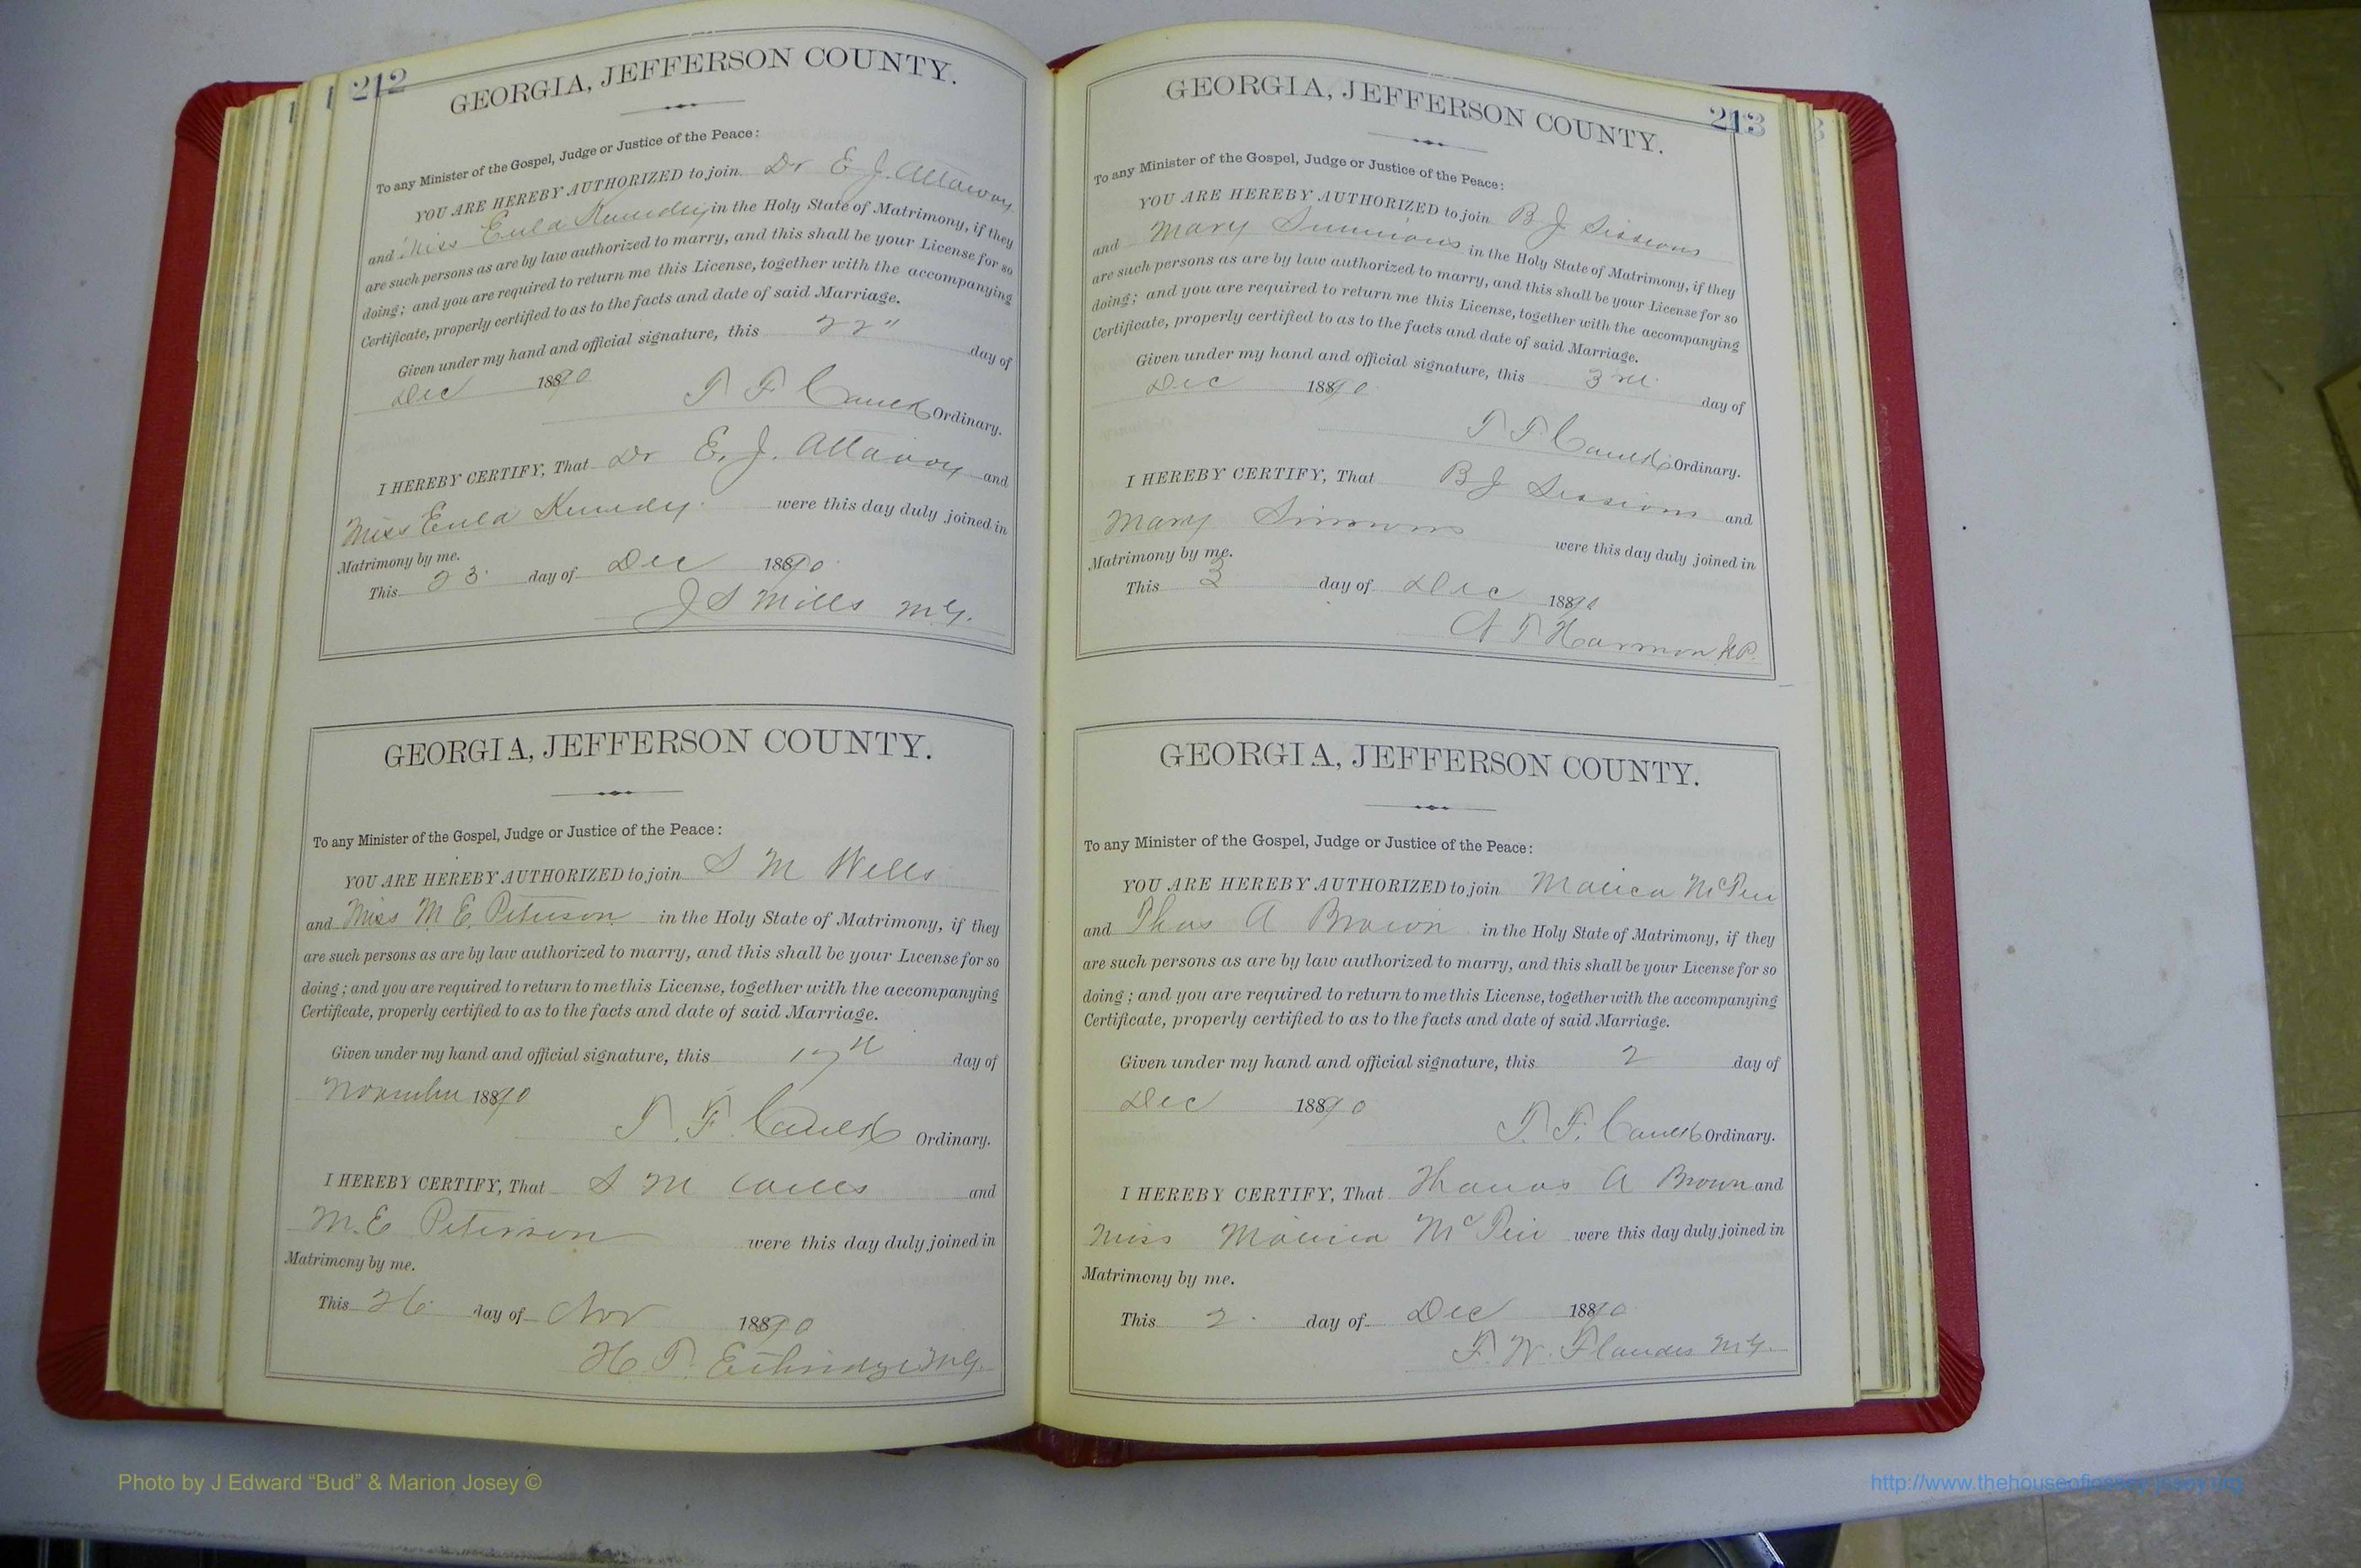 212
GEORGIA, JEFFERSON COUNTY.
To any Minister of the Gospel, Judge or Justice of the Peace:
YOU ARE HEREBY AUTHORIZED to join Dr E J. Attaway
and Miss Eula Kennedy in the Holy State of Matrimony, if they
are such persons as are by law authorized to marry, and this shall be your License for so
doing; and you are required to return me this License, together with the accompanying
Certificate, properly certified to as to the facts and date of said Marriage.
Given under my hand and official signature, this 22" day of
Dec 1890
T F Ordinary.
I HEREBY CERTIFY, That Dr E. J. Attaway and
Miss Eula Kennedy. were this day duly joined in
Matrimony by me.
This 23 day of Dec 1890
J S Mills M.G.
GEORGIA, JEFFERSON COUNTY.
To any Minister of the Gospel, Judge or Justice of the Peace:
YOU ARE HEREBY AUTHORIZED to join S M Wells
and Miss M. E. Peterson in the Holy State of Matrimony, if they
are such persons as are by law authorized to marry, and this shall be your License for so
doing; and you are required to return to me this License, together with the accompanying
Certificate, properly certified to as to the facts and date of said Marriage.
Given under my hand and official signature, this 17th day of
November 1890
T. F. Ordinary.
I HEREBY CERTIFY, That S M Wells and
M. E Peterson were this day duly joined in
Matrimony by me.
This 26 day of Nov 1890
H T. Ethridge M.G.
213
GEORGIA, JEFFERSON COUNTY.
To any Minister of the Gospel, Judge or Justice of the Peace:
YOU ARE HEREBY AUTHORIZED to join B J Sessions
and Mary Simmons in the Holy State of Matrimony, if they
are such persons as are by law authorized to marry, and this shall be your License for so
doing; and you are required to return me this License, together with the accompanying
Certificate, properly certified to as to the facts and date of said Marriage.
Given under my hand and official signature, this 3rd day of
Dec 1890
T F Ordinary.
I HEREBY CERTIFY, That B J Sessions and
Mary Simmons were this day duly joined in
Matrimony by me.
This 3 day of Dec 1890
T Harmon
GEORGIA, JEFFERSON COUNTY.
To any Minister of the Gospel, Judge or Justice of the Peace:
YOU ARE HEREBY AUTHORIZED to join
and Thos A Brown in the Holy State of Matrimony, if they
are such persons as are by law authorized to marry, and this shall be your License for so
doing; and you are required to return to me this License, together with the accompanying
Certificate, properly certified to as to the facts and date of said Marriage.
Given under my hand and official signature, this 2 day of
Dec 1890
T. F. Ordinary.
I HEREBY CERTIFY, That Thomas A Brown and
Miss were this day duly joined in
Matrimony by me.
This 2 day of Dec 1890
F. W. Flanders M.G.
Photo by J Edward “Bud” & Marion Josey ©